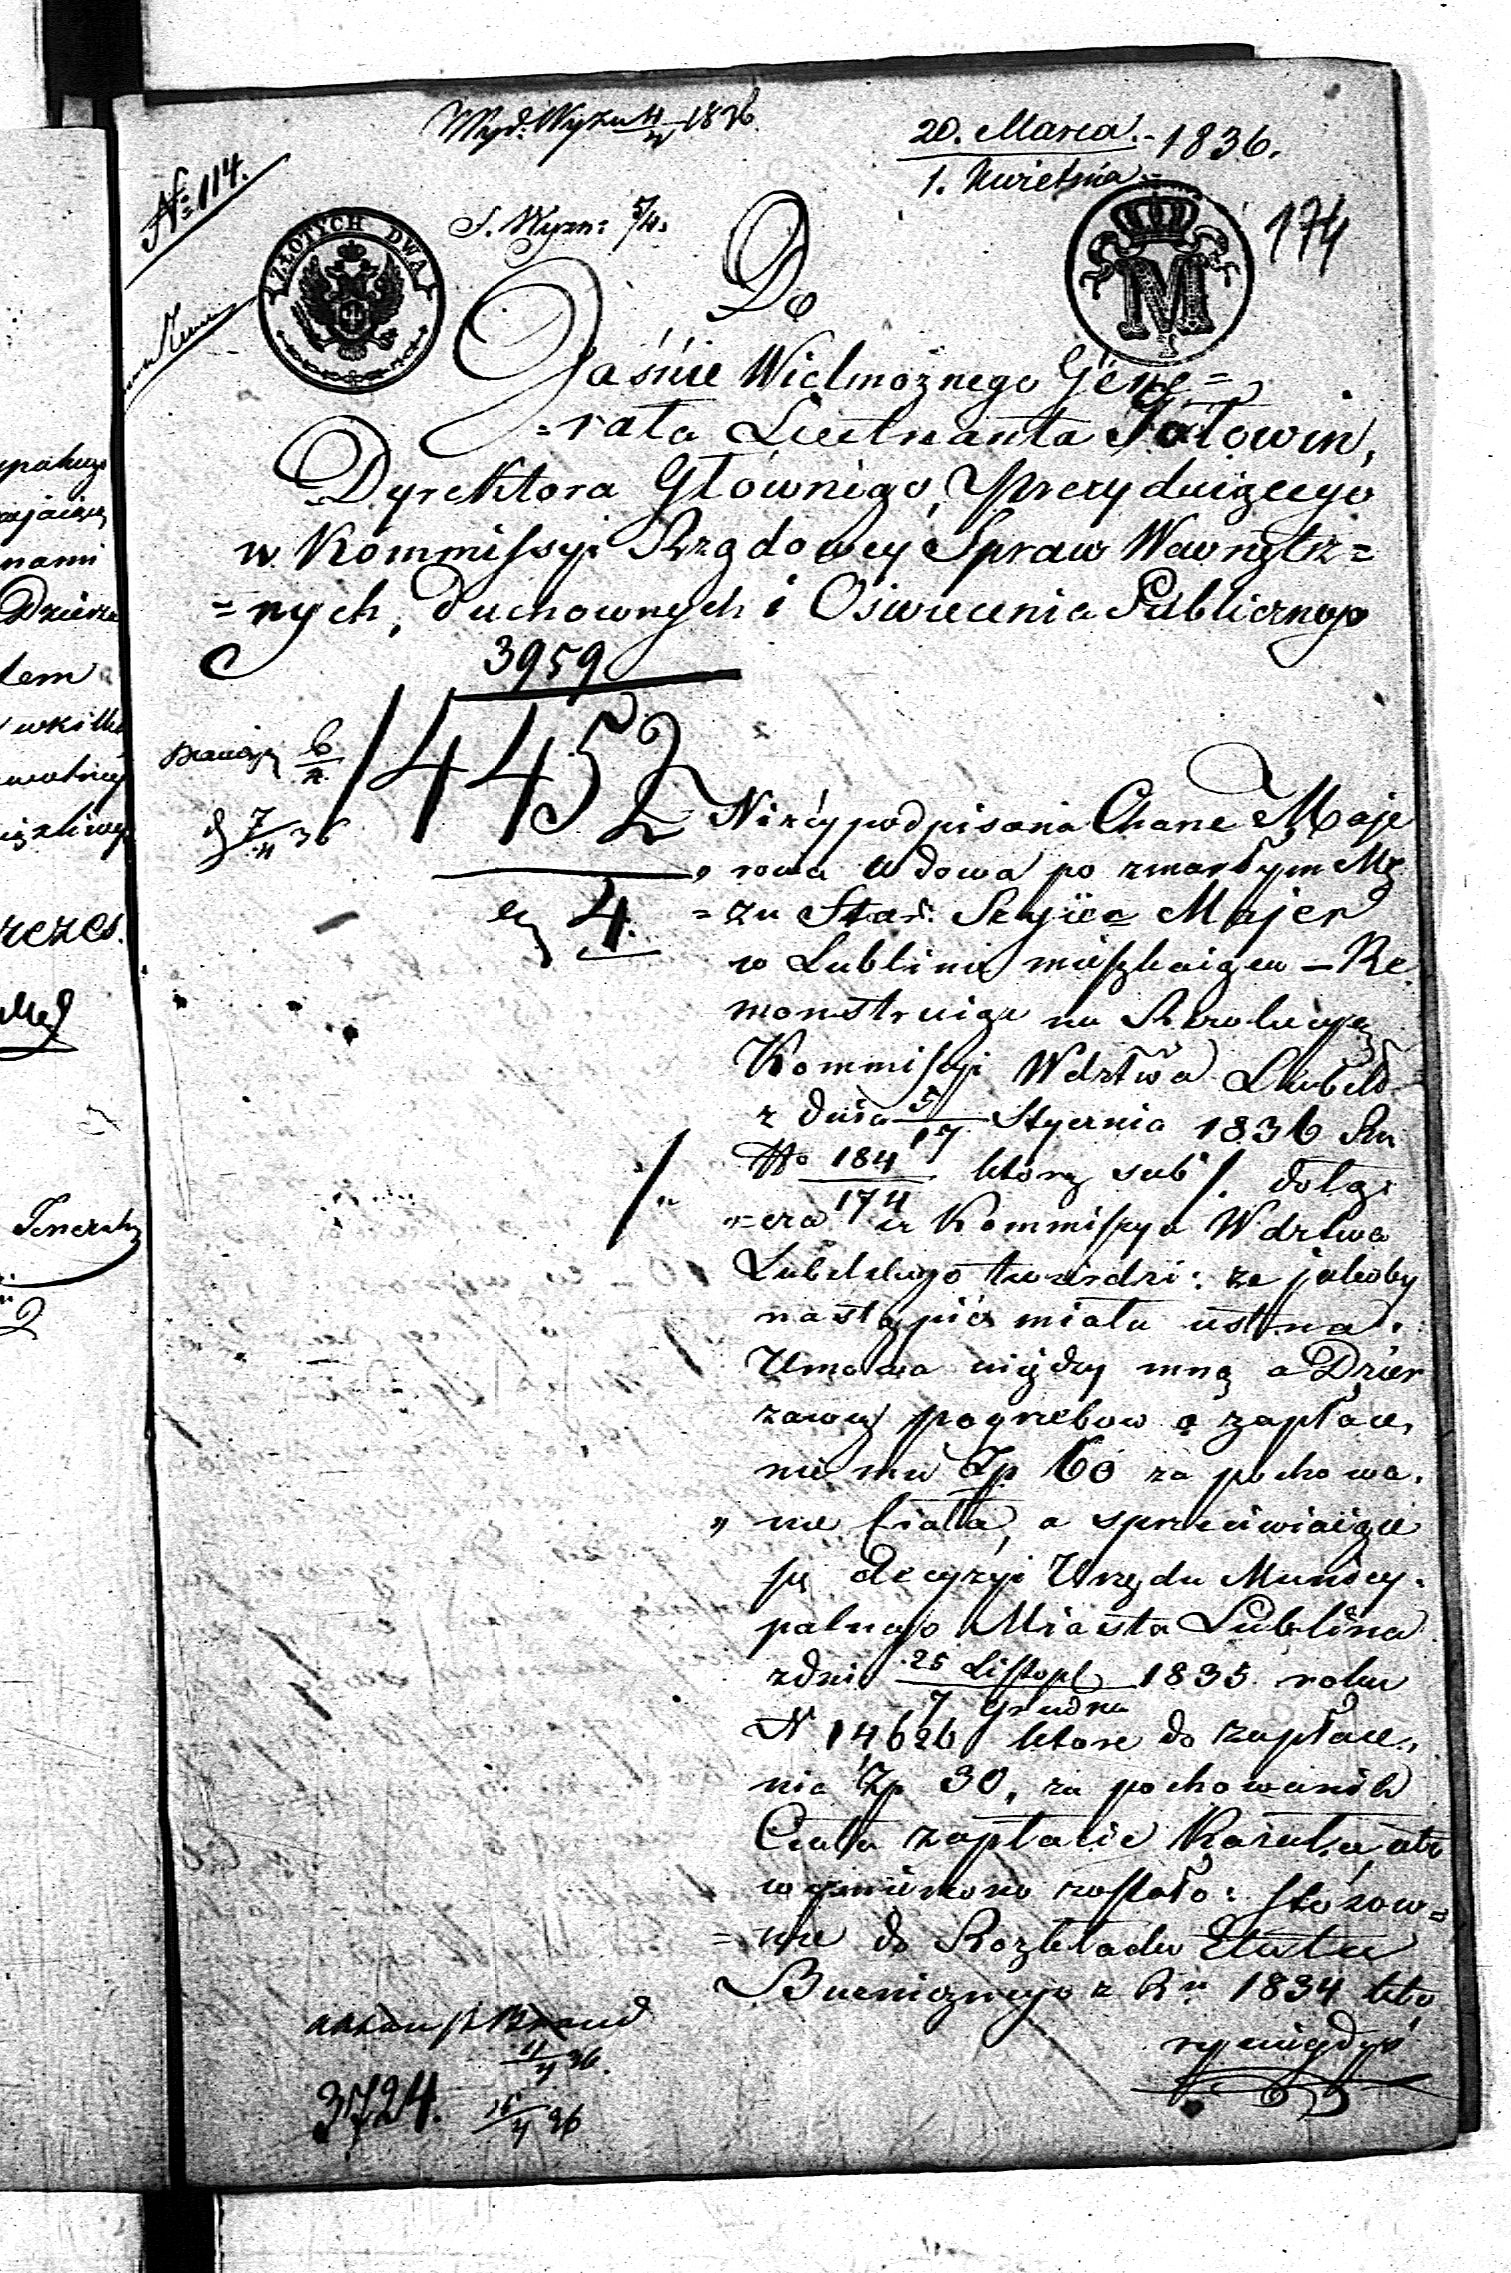 Wyd. Wyzn 4/4 1836
20. Marca
1. Kwietnia - 1836.
No 114.
S. Wyzn: 5/4.
174
ZŁOTYCH DWA
M
Do
Jaśnie Wielmożnego Géne=
=rała Lieutnanta Gołowin,
Dyrektora Głównégo, Prezyduiącego
w Kommissyi Rządowey Spraw Wewnętrz=
=nych, Duchownych i Oświecenia Publicznego
3959
14452
4.
7/4 36
Niżéy podpisana Chane Maje
rowa wdowa po zmarłym Mę
=zu Star. Szyiea Majer
w Lublinie mieszkaiąca - Re
monstruiąc na Rezolucyą
Kommissyi Wdztwa Lubels
z dnia 5/17 Stycznia 1836 Rn
No 184/174 którą sub /. dołą
=cza w Kommissya Wdztwa
Lubelskiego twierdzi: że jakoby
nastąpić miała ustna
Umowa między mną a Dzier
zawcą pogrzebow o zapłace,
nie mu Zp 60 za pochowa.
nie Ciała, a sprzeciwiaiące
się decyzyi Urzędu Municy.
palnego Miasta Lublina
z dnia 25 Listopd / 7 Grudnia 1835 roku
N 14626 ktore do zapłace,
nia Zp 30, za pochowanie
Ciała zapłacić Kazała, ato
wymieniono zostało: stosow=
=nie do Rozkładu Etatu
Bucnicznego z Rn 1834 kto
ry nigdyś
3724.
11/4 36.